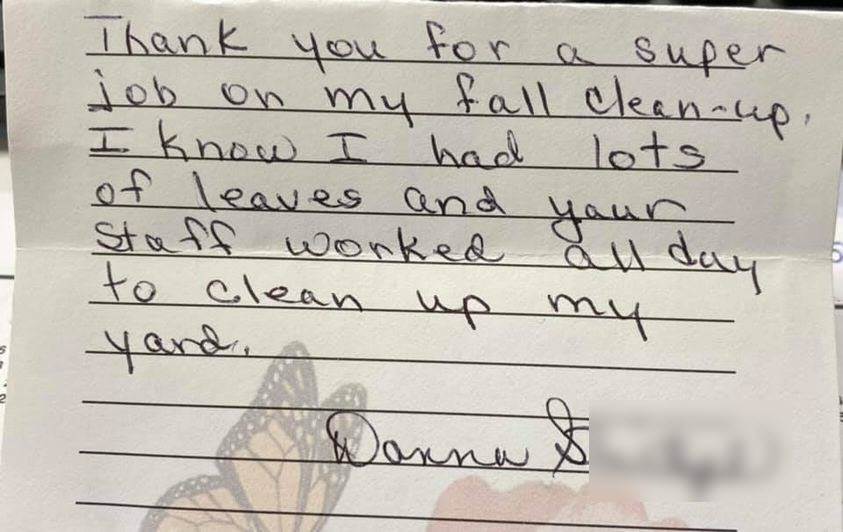 Thank you for a super
job on my fall clean-up.
I know I had lots
of leaves and your
staff worked all day
to clean up my
yard.
Donna S